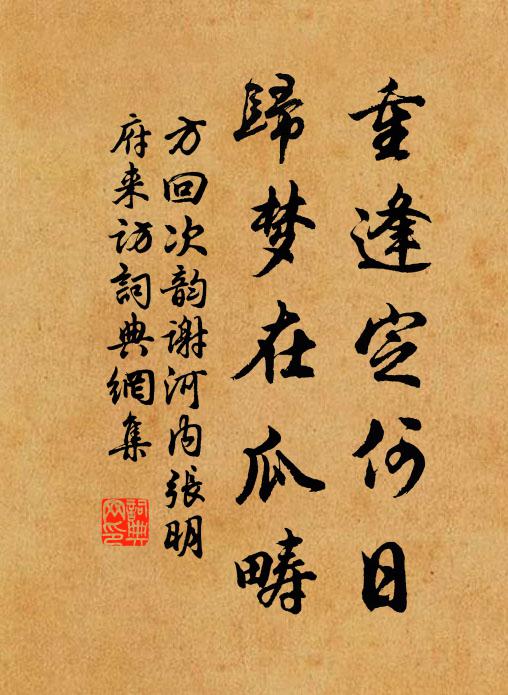 重逢定何日
歸梦在瓜疇
方回次韵谢河内張明
府来訪詞典網集
詞典
网印